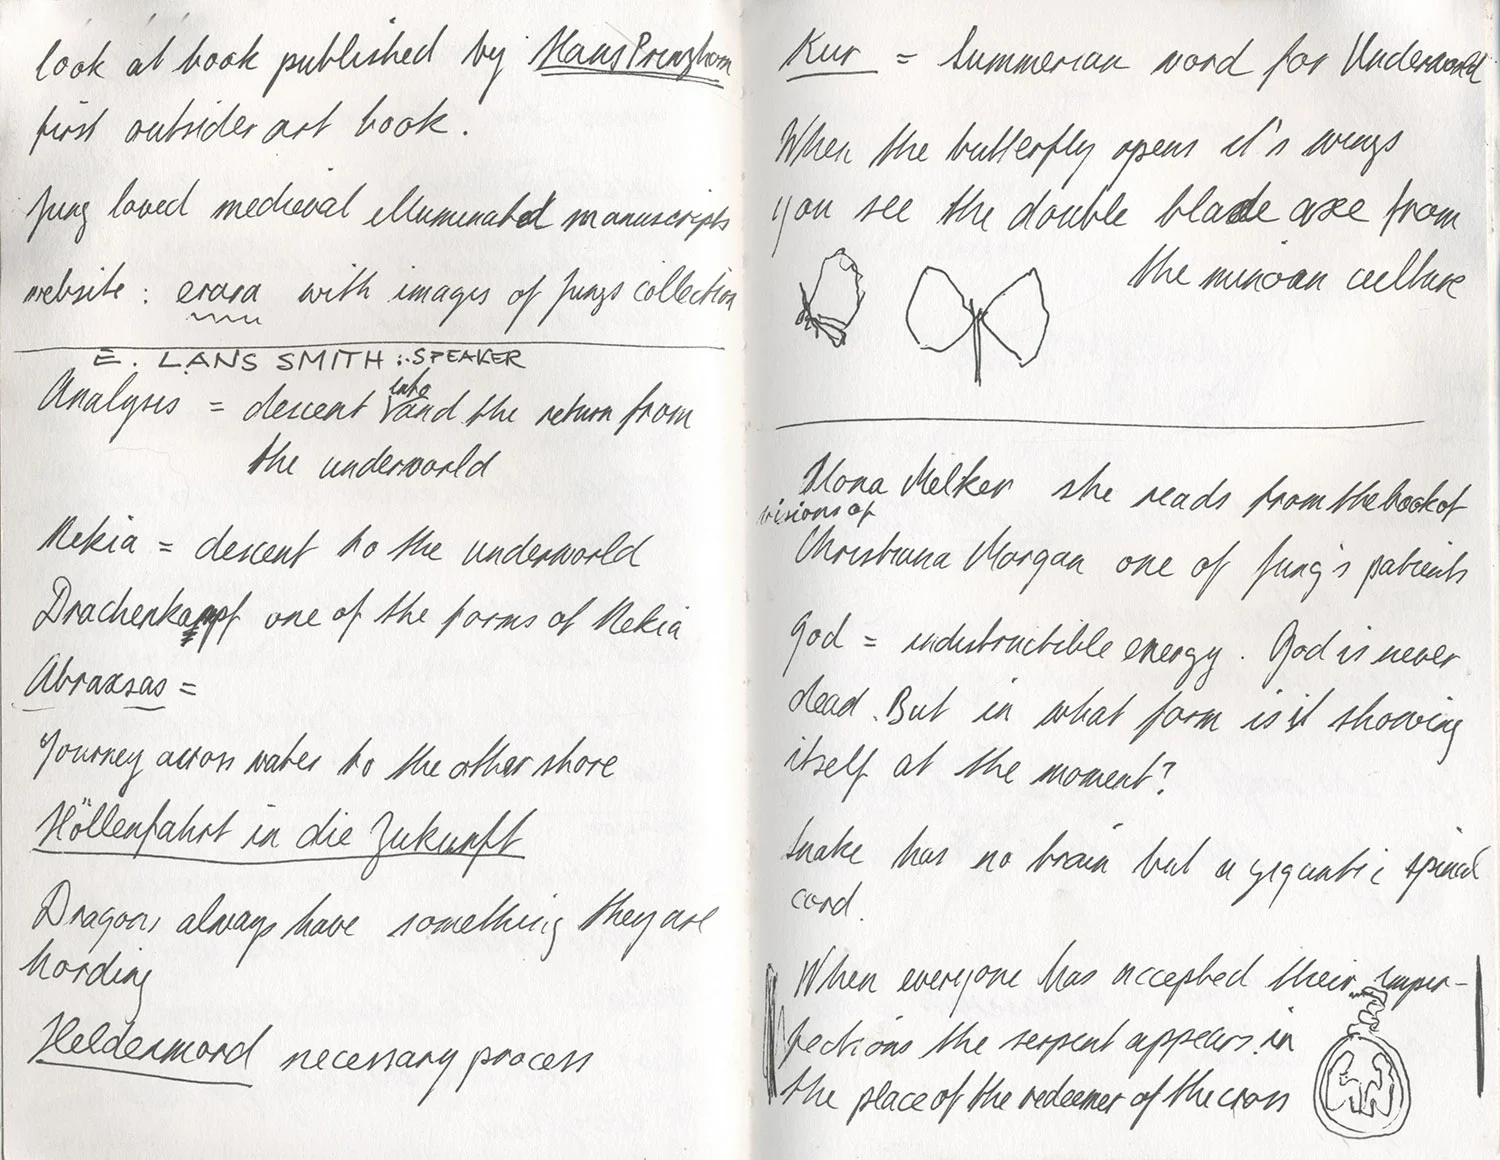 look at book published by Hans Prinzhorn
first outsider art book.
Jung loved medieval illuminated manuscripts
website : erara with images of Jungs collection
E. LANS SMITH : SPEAKER
Analysis = descent into and the return from
the underworld
Nekia = descent to the underworld
Drachenkampf one of the forms of Nekia
Abraxsas =
Journey across water to the other shore
Höllenfahrt in die Zukunft
Dragons always have something they are
hording
Heldenmord necessary process
Kur = Summerian word for Underworld
When the butterfly opens it's wings
you see the double blade axe from
the minoan culture
Ilona Melker she reads from the book of
visions of
Christiana Morgan one of Jung's patients
God = indistructible energy. God is never
dead. But in what form is it showing
itself at the moment?
Snake has no brain but a gigantic spinal
cord.
When everyone has accepted their imper-
fections the serpent appears in
the place of the redeemer of the cross